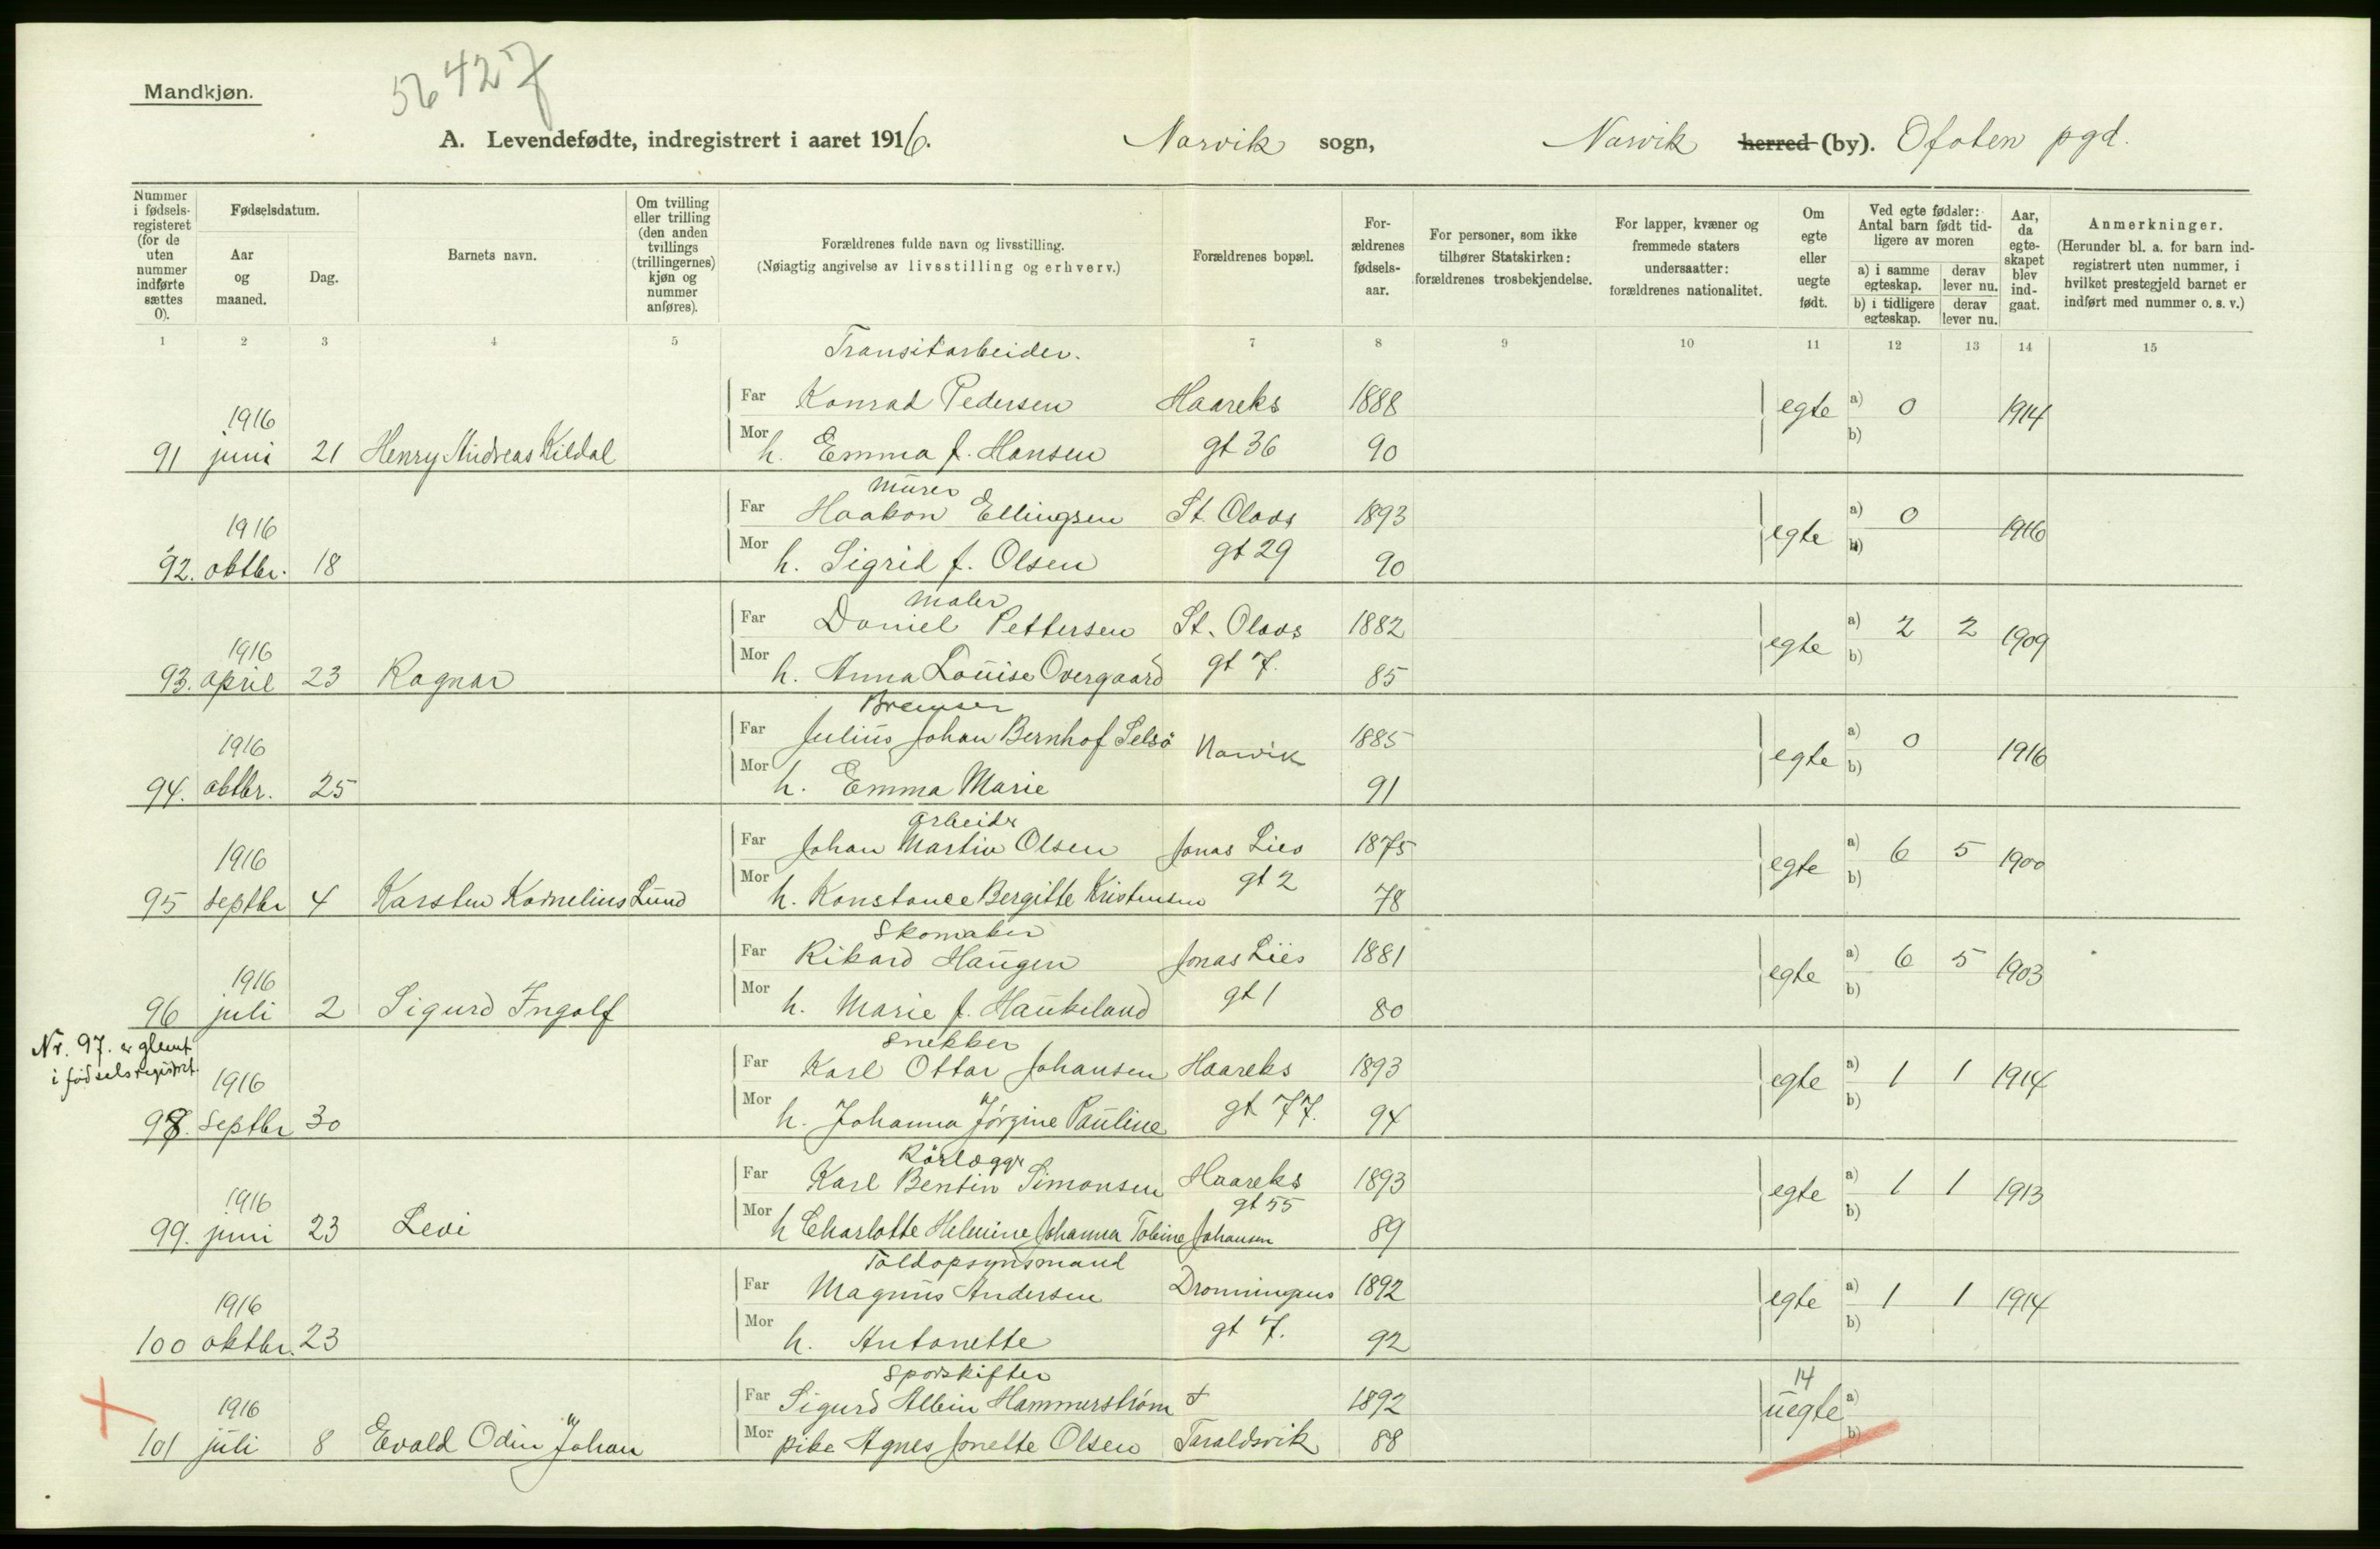 Mandkjøn.
56427
A. Levendefødte, indregistrert i aaret 1916. Narvik sogn, Narvik herred (by). Ofoten pgd.
Nummer i fødsels-registeret (for de uten nummer indførte sættes 0).
Fødselsdatum.
Aar og maaned.
Dag.
Barnets navn.
Om tvilling eller trilling (den anden tvillings (trillingernes) kjøn og nummer anføres).
Forældrenes fulde navn og livsstilling.
(Nøiagtig angivelse av livsstilling og erhverv.)
Forældrenes bopæl.
For-ældrenes fødsels-aar.
For personer, som ikke tilhører Statskirken: forældrenes trosbekjendelse.
For lapper, kvæner og fremmede staters undersaatter: forældrenes nationalitet.
Om egte eller uegte født.
Ved egte fødsler: Antal barn født tid-ligere av moren
a) i samme egteskap. derav lever nu.
b) i tidligere egteskap. derav lever nu.
Aar, da egte-skapet blev ind-gaat.
Anmerkninger.
(Herunder bl. a. for barn ind-registrert uten nummer, i hvilket prestegjeld barnet er indført med nummer o. s. v.)
1 2 3 4 5 7 8 9 10 11 12 13 14 15
Transitarbeider.
Far Konrad Pedersen Haareks 1888 egte a) 0 1914
1916
Mor h. Emma f. Hansen gt 36 90 b)
91 juni 21 Henry Andreas Kildal
Murer
Far Haakon Ellingsen St. Olavs 1893 egte a) 0 1916
1916
Mor h. Sigrid f. Olsen gt 29 90 b)
92. oktbr. 18
Maler
Far Daniel Pettersen St. Olavs 1882 egte a) 2 2 1909
1916
Mor h. Anna Louise Overgaard gt 7. 85 b)
93. april 23 Ragnar
Bremser
Far Julius Johan Bernhof Selsö Narvik 1885 egte a) 0 1916
1916
Mor h. Emma Marie 91 b)
94. oktbr. 25
Arbeidr
Far Johan Martin Olsen Jonas Lies 1875 egte a) 6 5 1900
1916
Mor h. Konstance Bergitte Kristensen gt 2 78 b)
95 septbr 4 Karsten Kornelius Lund
Skomaker
Far Rikard Haugen Jonas Lies 1881 egte a) 6 5 1903
1916
Mor h. Marie f. Haukeland gt 1 80 b)
96 juli 2 Sigurd Ingolf
Nr. 97. er glemt
i fødselsregistret.
Snekker
Far Karl Ottar Johansen Haareks 1893 egte a) 1 1 1914
1916
Mor h. Johanna Jørgine Pauline gt 77. 94 b)
98. septbr 30
Rörlæggr
Far Karl Bentin Simonsen Haareks 1893 egte a) 1 1 1913
1916
Mor h Charlotte Helmine Johanna Tobine Johansen gt 55 89 b)
99. juni 23 Levi
Toldopsynsmand
Far Magnus Andersen Dronningens 1892 egte a) 1 1 1914
1916
Mor h. Antonette gt 7. 92 b)
100 oktbr. 23
Sporskifter
14
Far Sigurd Albin Hammerstrøm 1892 uegte a)
1916
Mor pike Agnes Jonette Olsen Taraldsvik 88 b)
101 juli 8 Evald Odin Johan